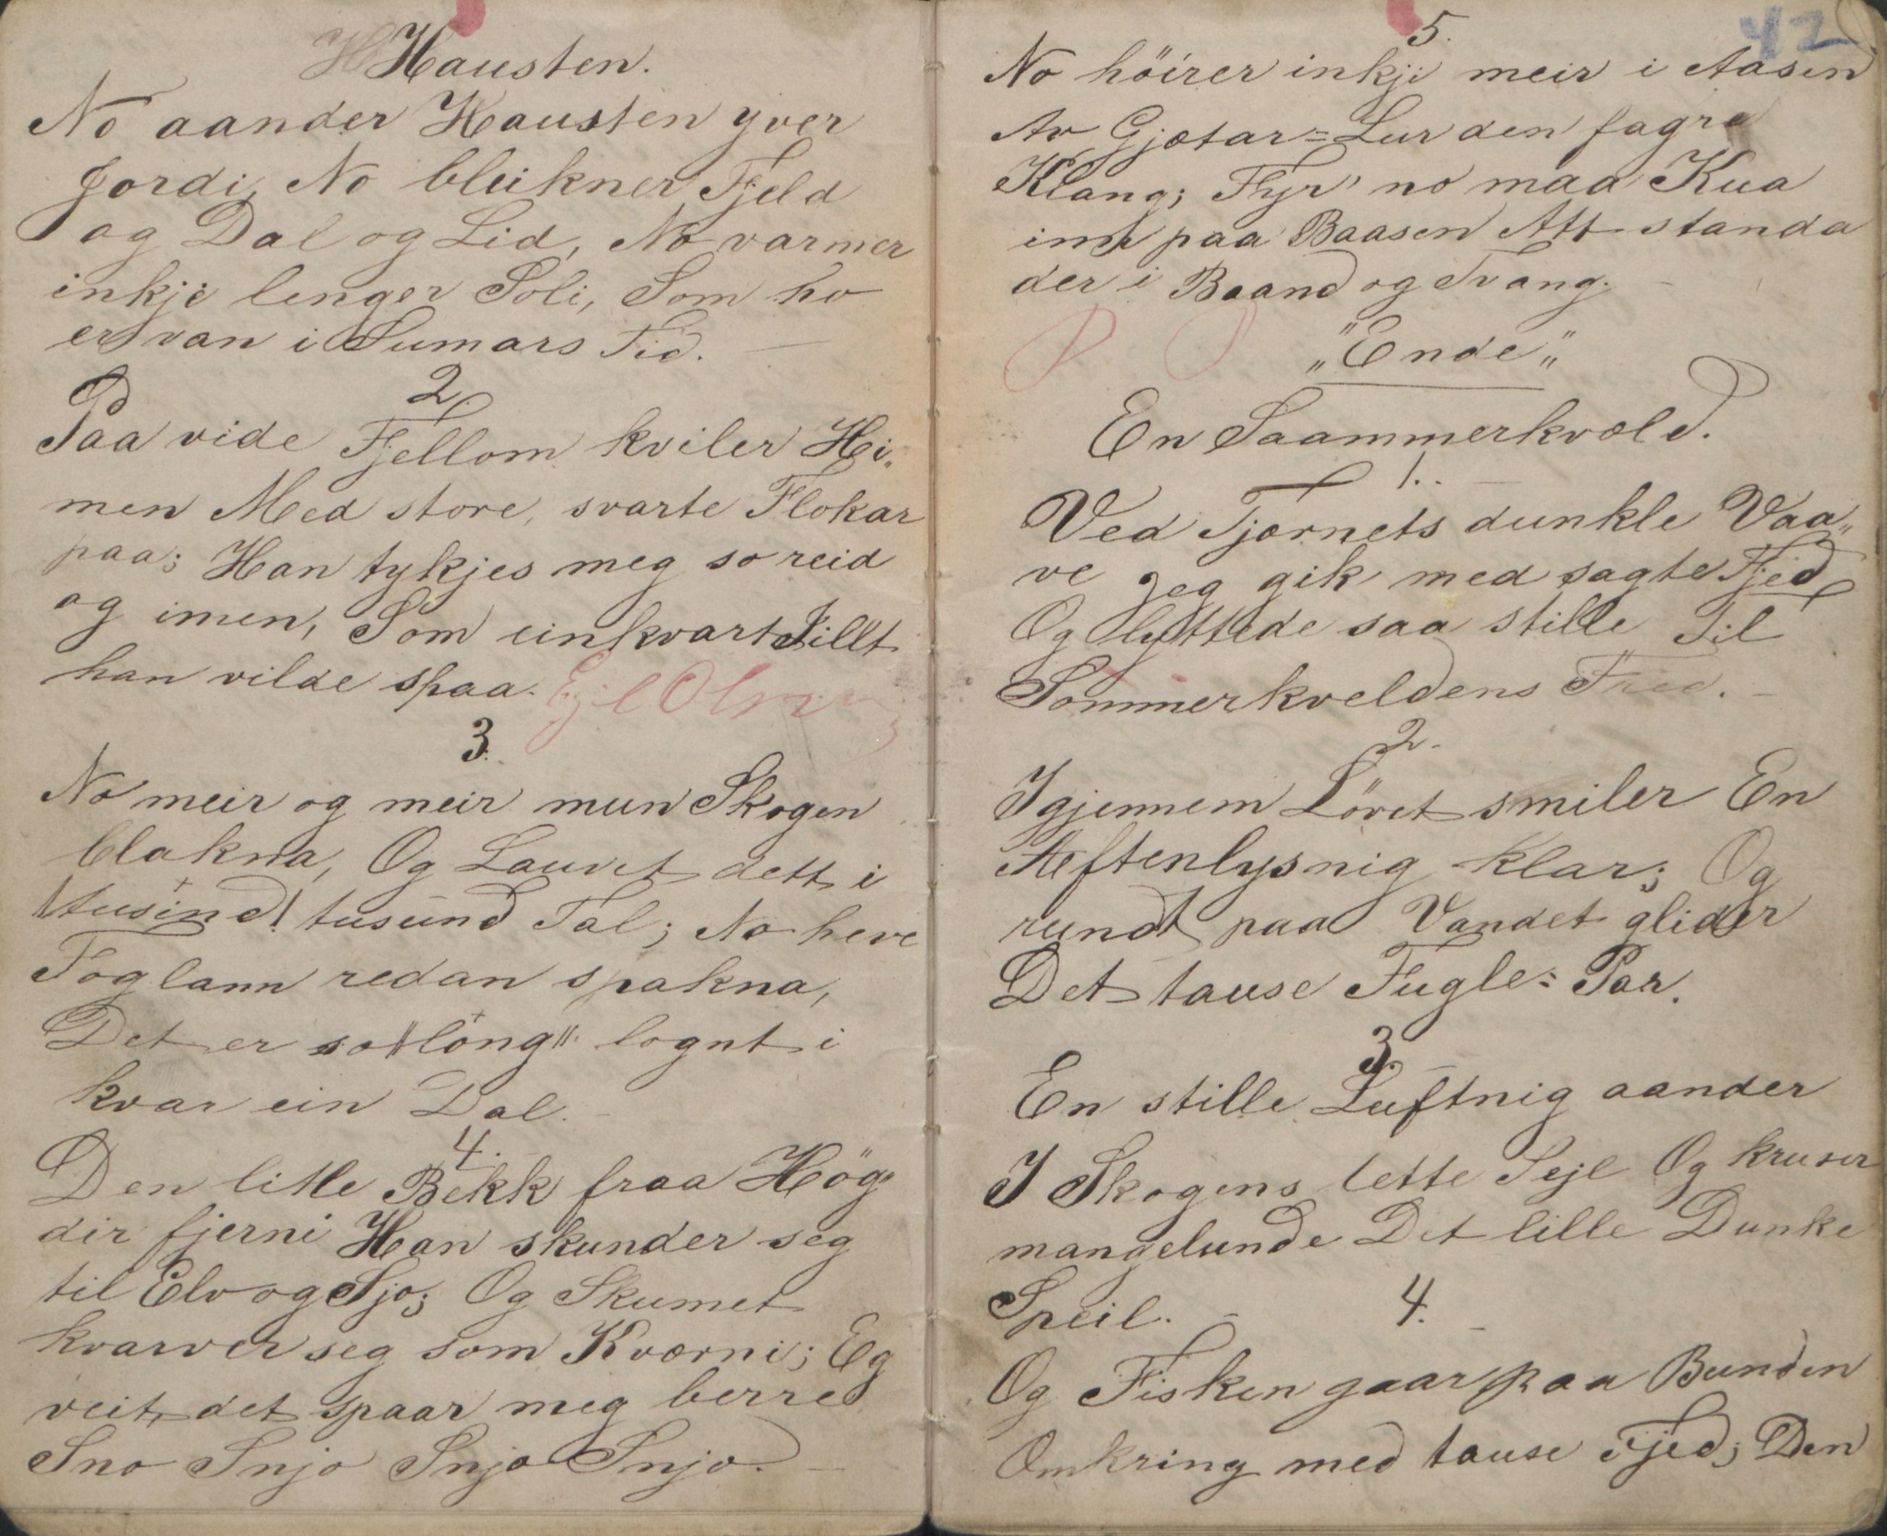 Hausten.
No aander Hausten yver
Jordi, No bleikner Fjeld
og Dal og Lid, No varmer
inkje lenger Soli, Som ho
er van i Sumars Tid.
2.
Paa vide Fjellom kviler Hi„
men Med store, svarte Flokar
paa; Han tykjes meg so reid
og imen, Som einkvart Jillt
han vilde spaa.
3.
No meir og meir mun Skogen
blakna, Og Lauvet dett i
tusind tusund Tal; No heve
Foglann redan spakna,
Det er so long lognt i
kvar ein Dal.
4.
Den litle Bekk fraa Hög„
dir fjerni Han skunder seg
til Elv og Sjo; Og Skumet
kvarver seg som Kværni; Eg
veit, det spaar meg berre
Sno Snjo Snjo Snjo.
42
5.
No höirer inkje meir i Aasen
Av Gjætar=Lur den fagre
Klang; Fyr' no maa Kua
inn paa Baasen Att standa
der i Baand og Tvang.
„Ende„
En Saammerkvæld.
1.
Ved Tjørnets dunkle Vaa„
ve jeg gik med sagte Fjed
Og lyttede saa stille Til
Sommerkveldens Fred.
2.
Igjennem Løvet smiler En
Aeftenlysnig klar; Og
rundt paa Vandet glider
Det tause Fugle=Par.
3.
En stille Luftnig aander
I Skogens lette Sejl Og kruser
mangelunde Det lille Dunke
Speil.
4.
Og Fisken gaar paa Bunden
Omkring med tause Fjed; Den